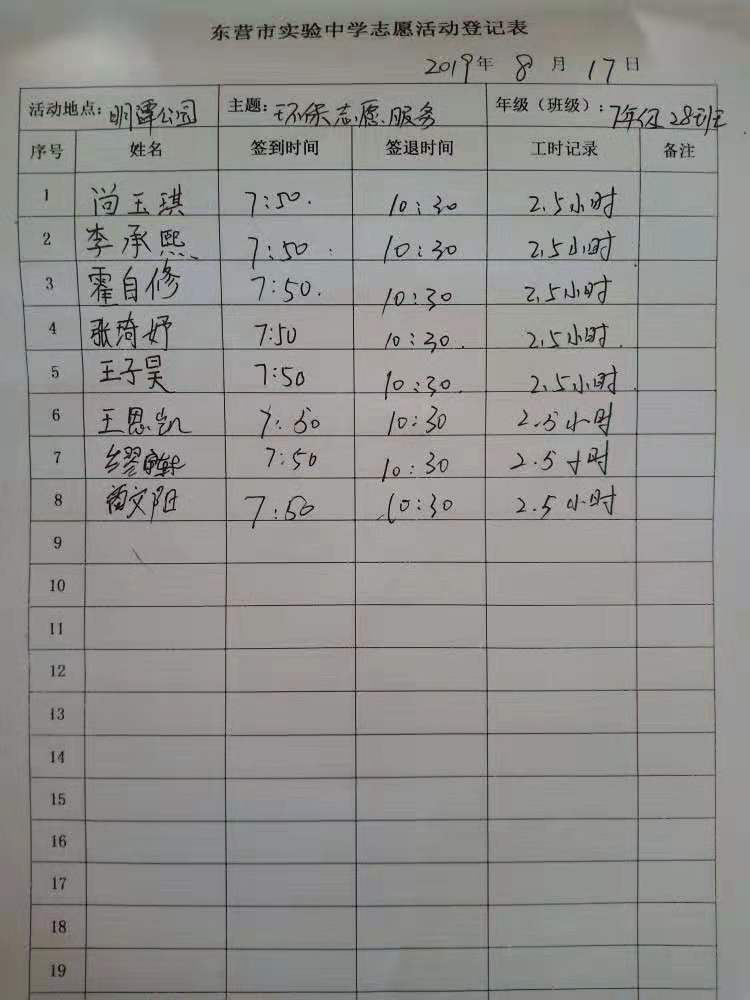 东营市实验中学志愿活动登记表
2019年 8 月 17日
活动地点：明潭公园 主题：环保志愿服务 年级（班级）：7年级28班
序号 姓名 签到时间 签退时间 工时记录 备注
1 尚玉琪 7:50. 10:30 2.5小时
2 李承熙 7:50. 10:30 2.5小时
3 霍自修 7:50. 10:30 2.5小时
4 张琦妤 7:50 10:30. 2.5小时.
5 王子昊 7:50 10:30. 2.5小时
6 王恩凯 7:50 10:30 2.5小时
7 7:50 10:30 2.5小时
8 文阳 7:50 10:30 2.5小时
9
10
11
12
13
14
15
16
17
18
19